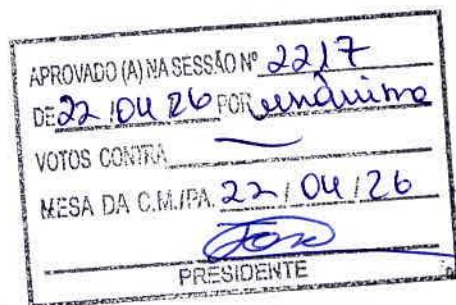 APROVADO (A) NA SESSÃO Nº 2217
DE 22 / 04 26 POR unânime
VOTOS CONTRA —
MESA DA C.M./PA. 22 / 04 / 26
PRESIDENTE